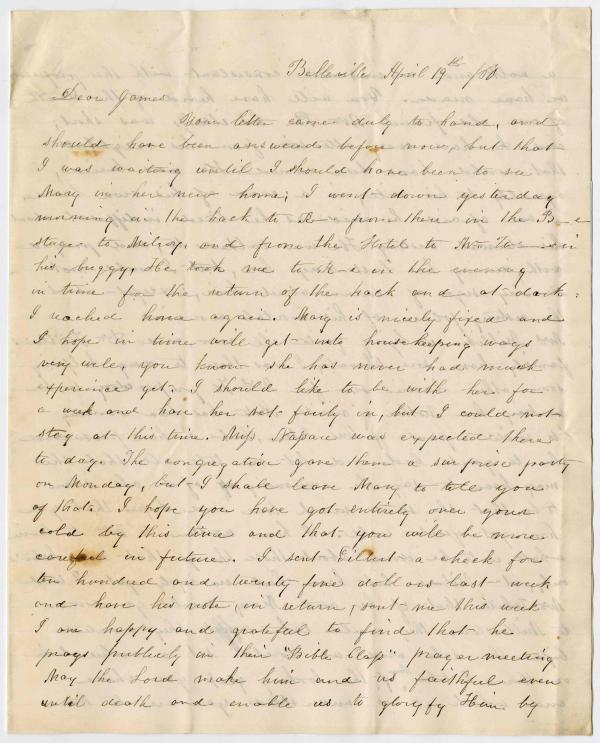 Belleville April 19th /88
Dear James
Your letter came duly to hand, and
should have been answeard before now, but that
I was waiting until I should have been to see
Mary in here new home; I went down yesterday
morning in the hack to R-e from there in the B-e
stage to Milroy, and from the Hotel to in
his buggy, He took me to R-e in the evening
in time for the return of the hack and at dark
I reached home again. Mary is nicely fixed and
I hope in time will get into housekeeping ways
very wele, you know she has never had much
experience yet. I should like to be with her for
a week and have her set fairly in, but I could not
stay at this time. Miss was expected there
to day. The congregation gave them a surprise party
on Monday, but I shall leave Mary to tele you
of that. I hope you have got entirely over your
cold by this time and that you will be more
careful in future. I sent Gilbert a check for
ten hundred and twenty five dollars last week
and have his note, in return, sent me this week
I am happy and grateful to find that he
prays publicly in their "Bible Class" prayer meeting
May the Lord make him and us faithful even
until death and enable us to gloryfy Him by